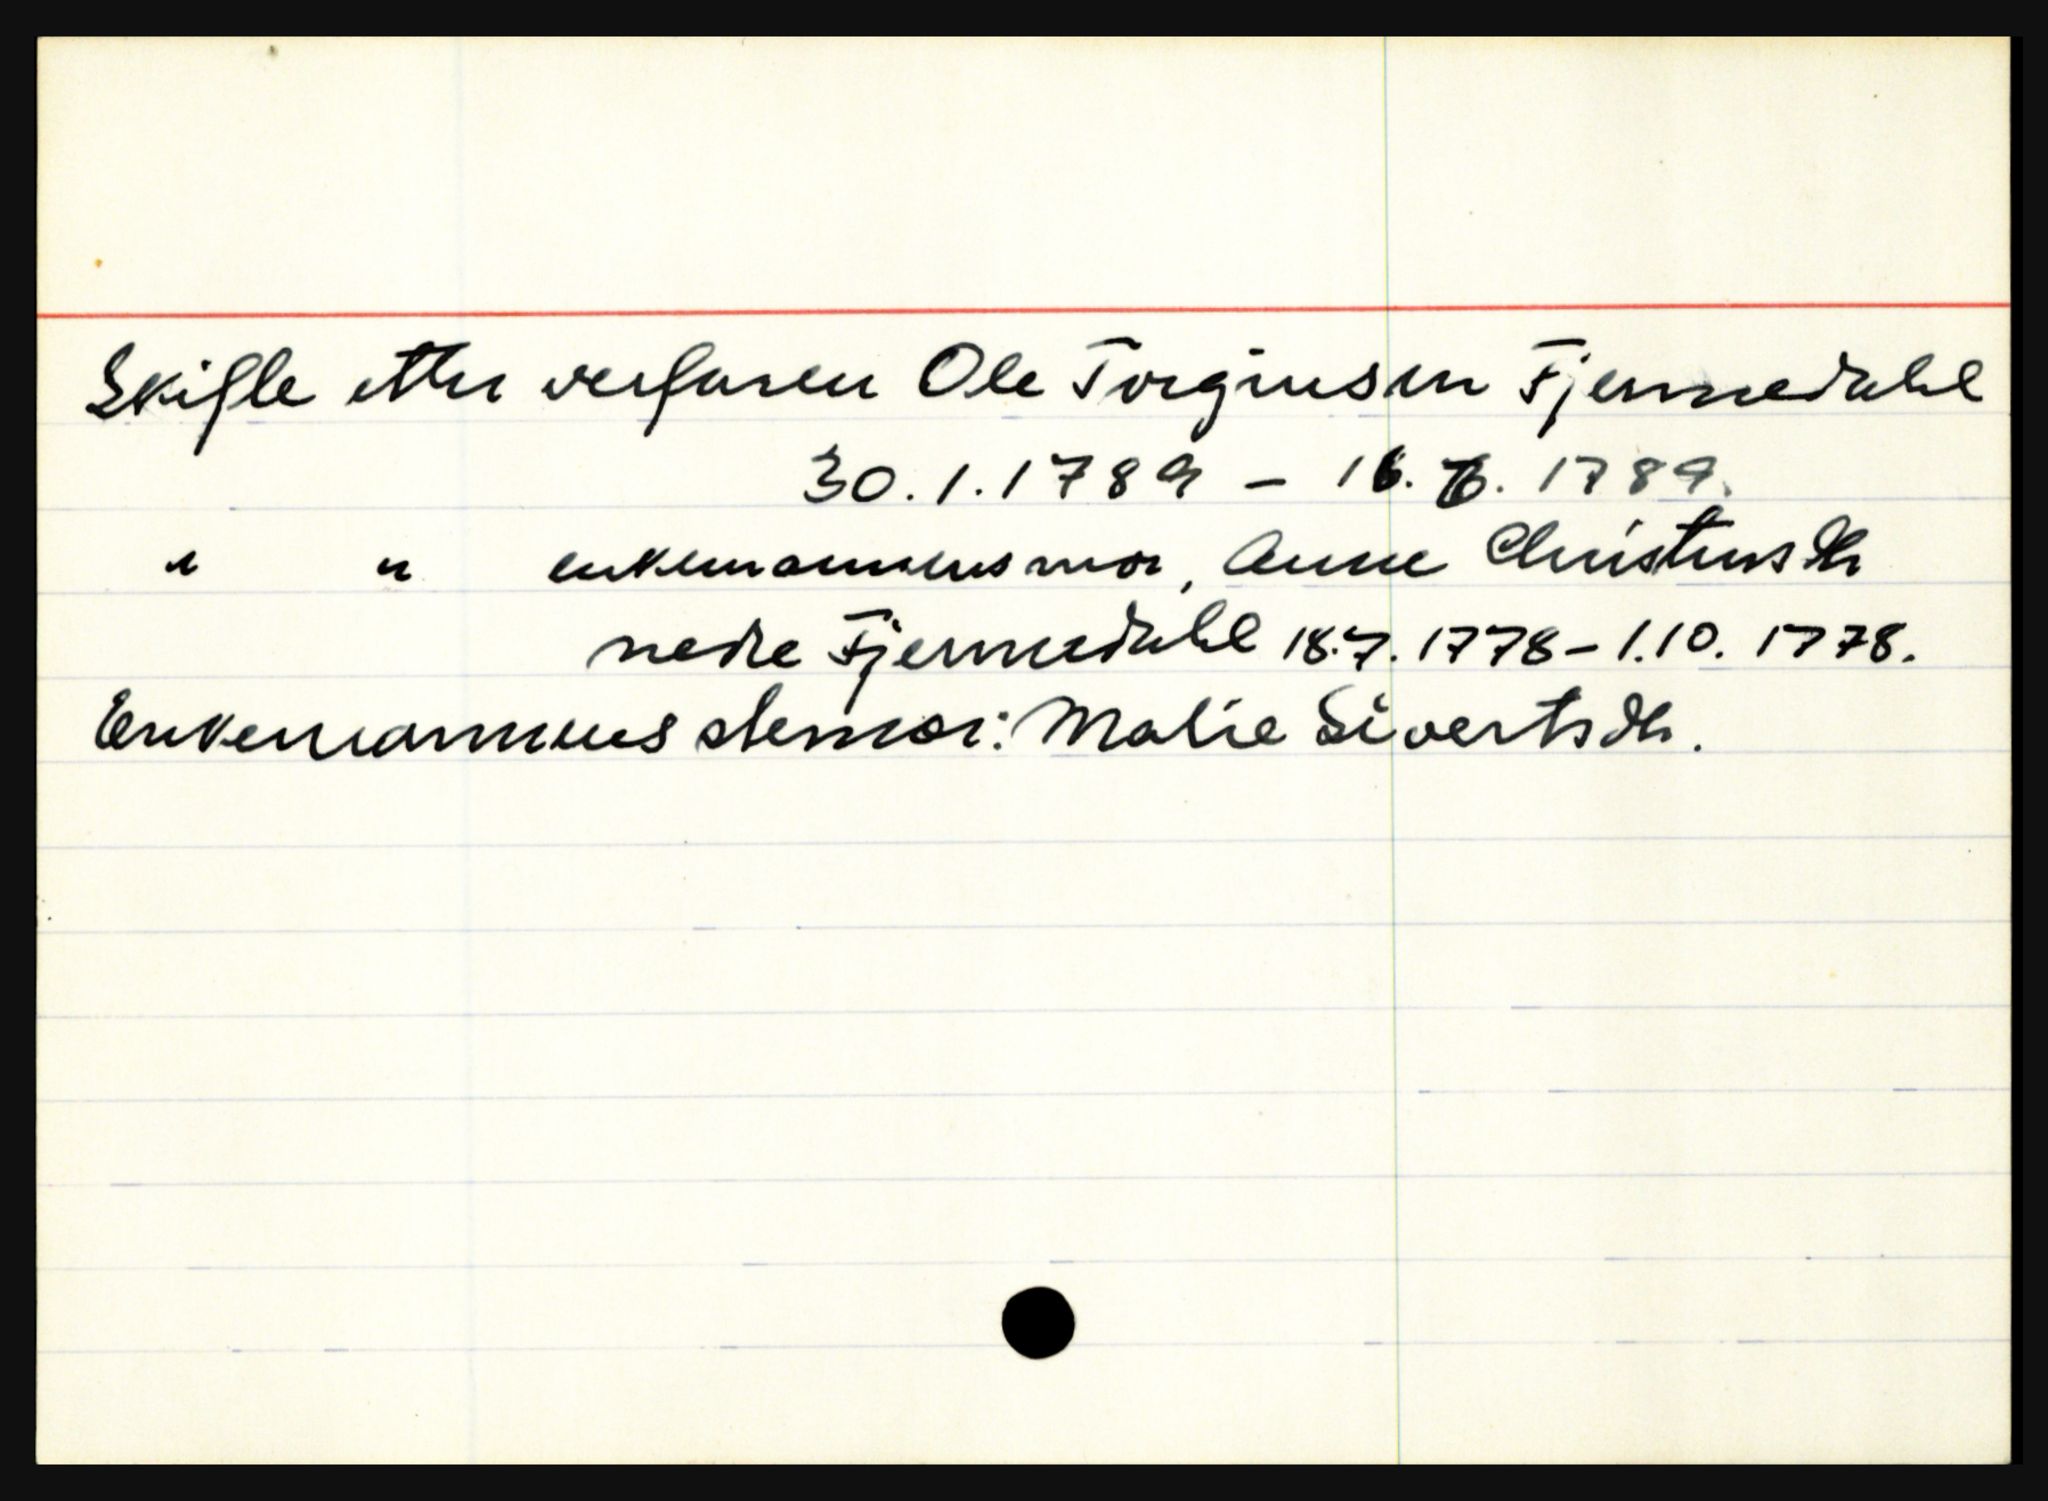 Skifte etter verfaren Ole Torginsen Fjermedahl
30.1.1789 - 16.6.1789.
" " enkemannens mor, Anne Christensdtr
nedre Fjermedahl 18.7.1778 - 1.10.1778.
Enkemannens stemor: Malie Sivertsdtr.